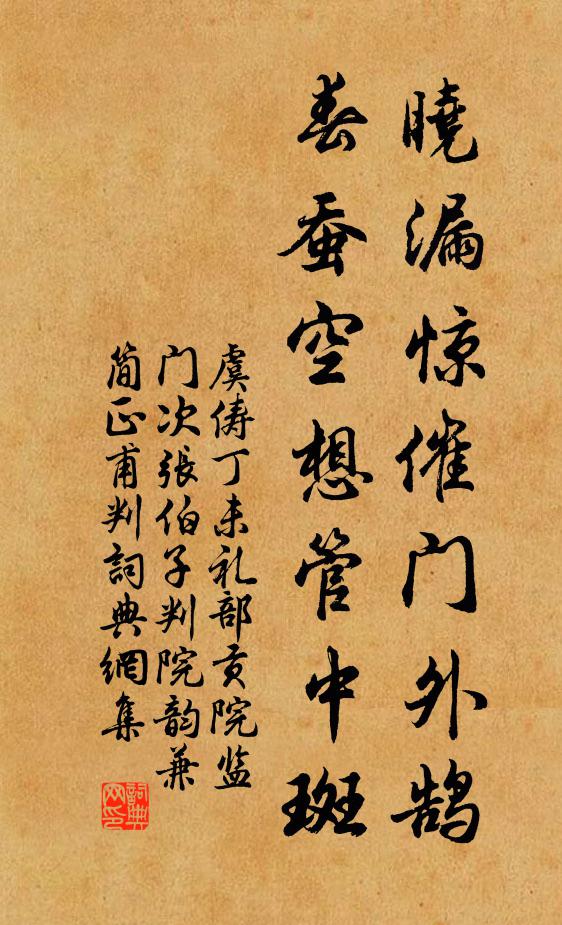 曉漏惊催门外鹄
春蚕空想管中斑
虞俦丁未礼部贡院监
门次張伯子判院韵兼
简正甫判詞典網集
詞典
网印